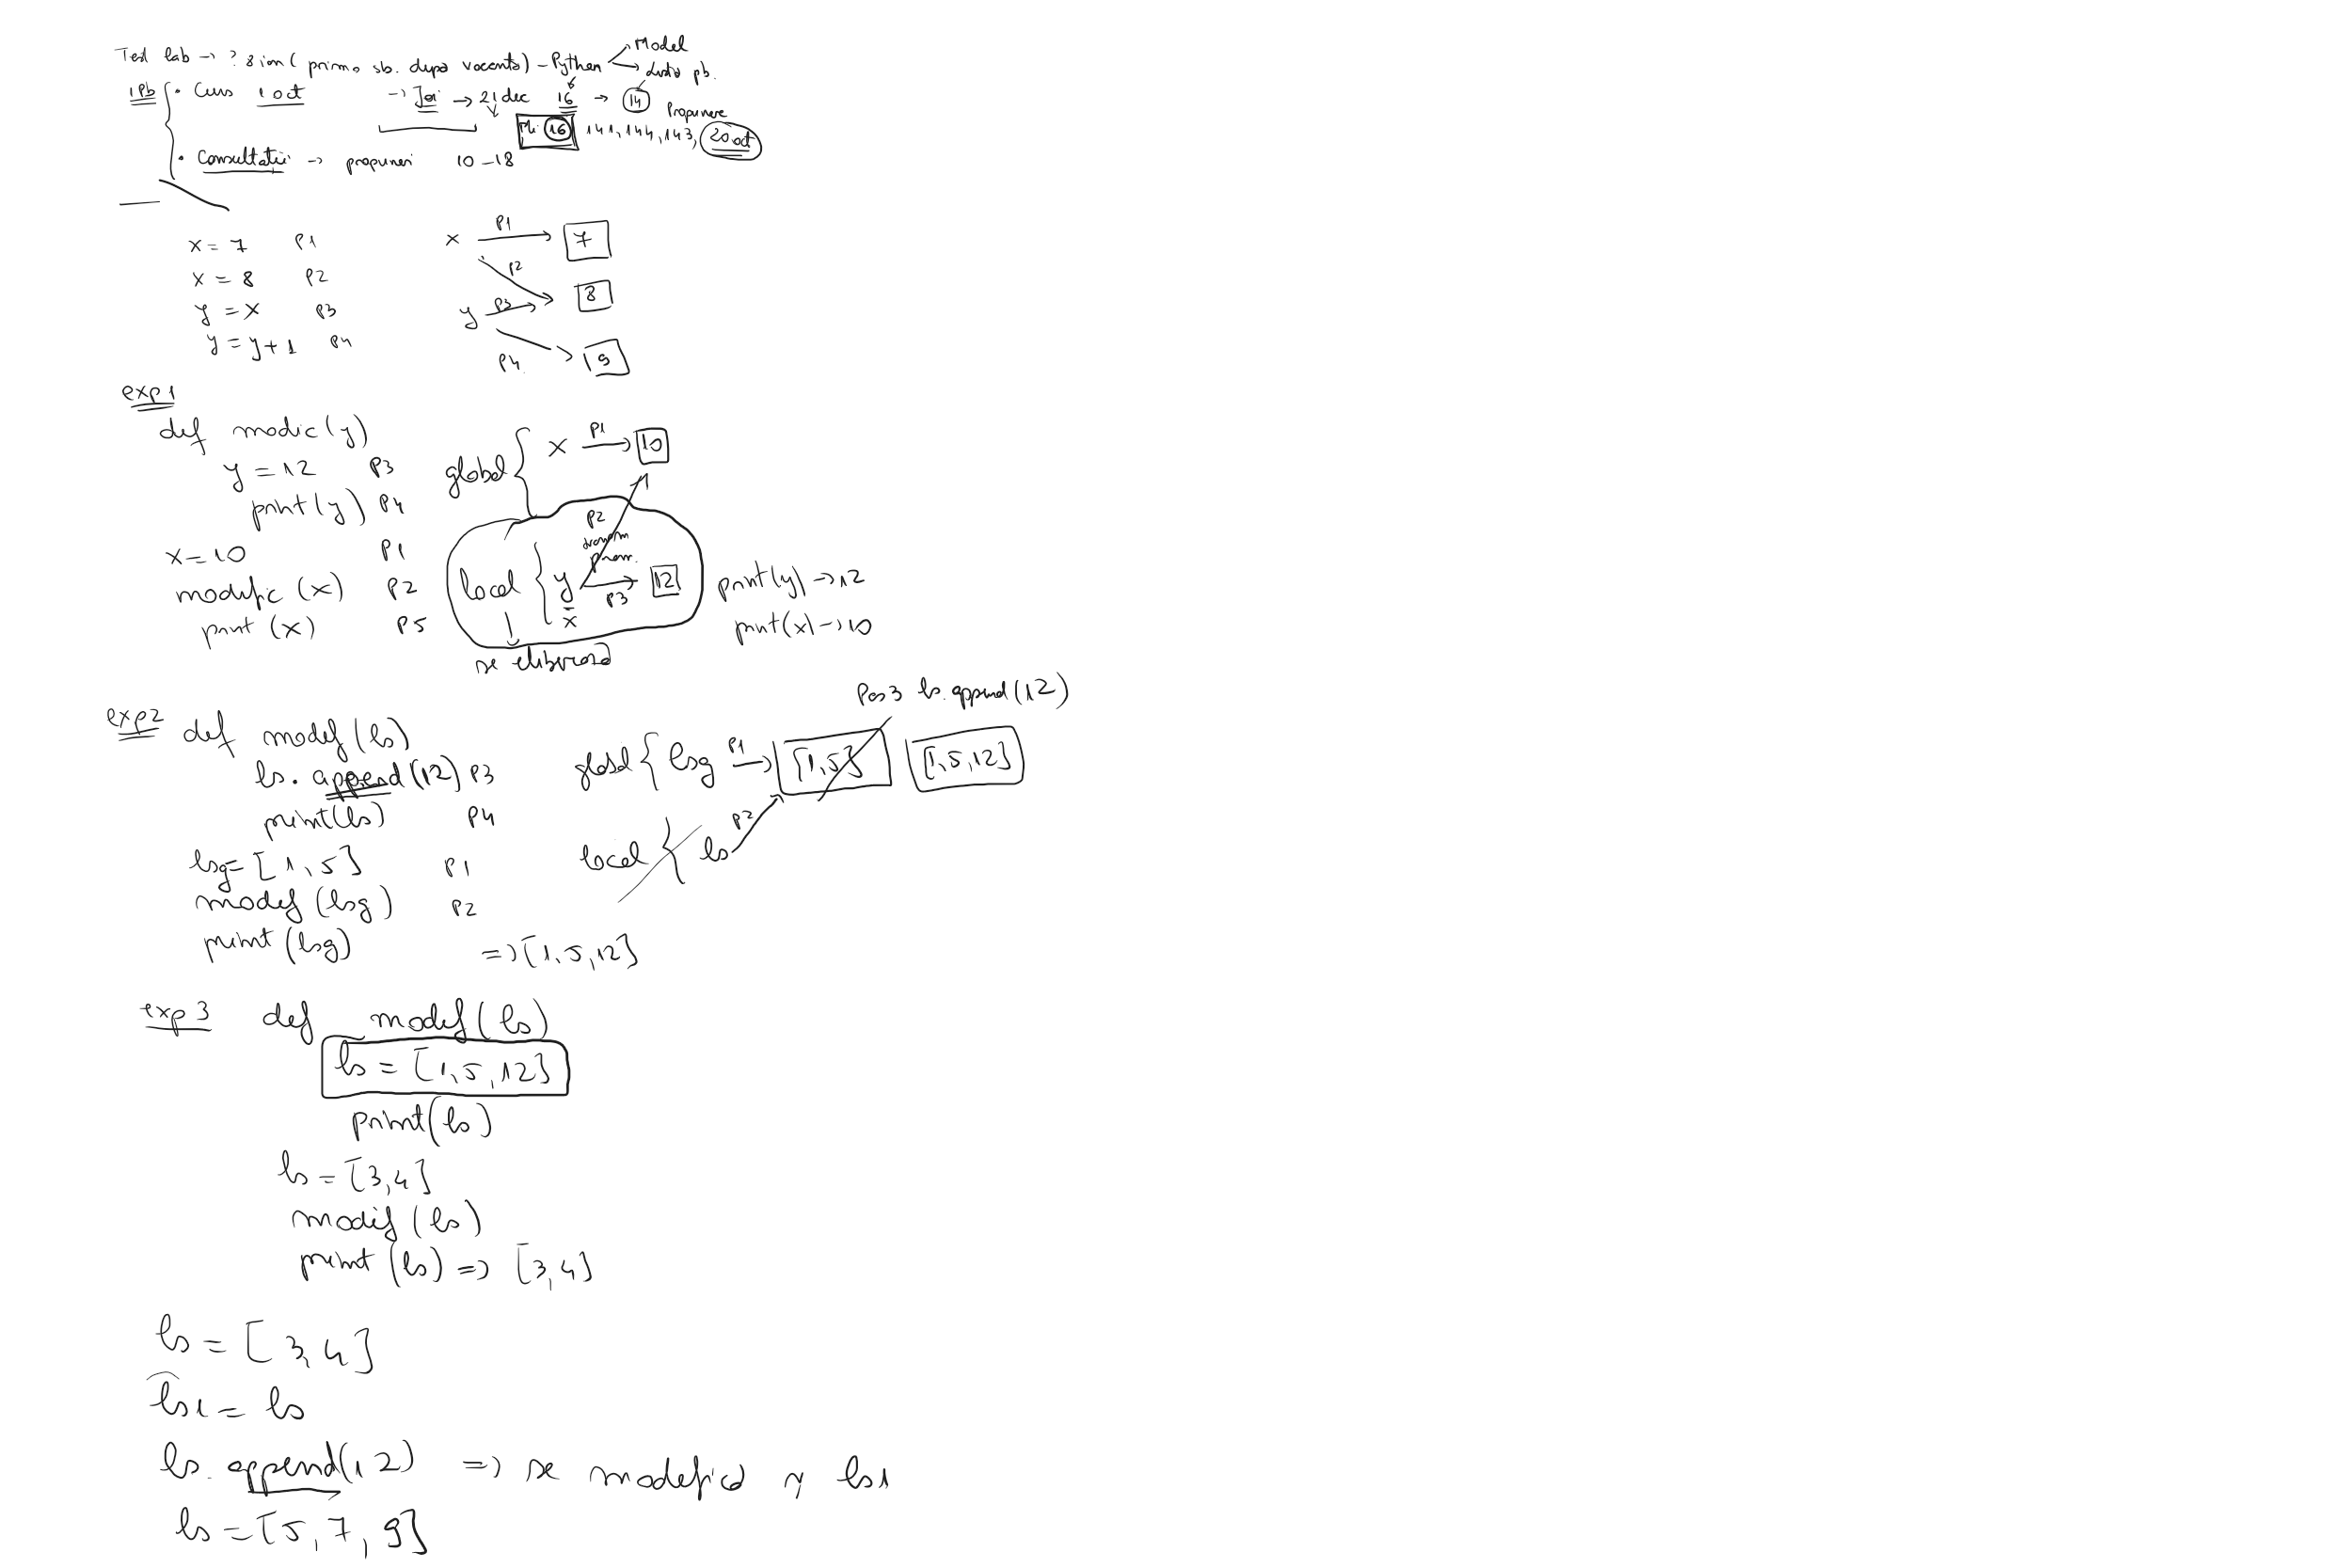 Test lab → ? 8 ian ( prima sb. după vacanță) – Python → Model
→ listă pb.
1 Pb • Curs 1 oct → Joi → 21 dec 16 → 14
Propunere
16 141, 144, 143, 20 oct
• Consultații → propuneri 10 – 18
x = 7 P1
x = 8 P2
y = x P3
y = y + 1 P4
x P1 7
P2
y P3 8
P4 9
exp1
def modic(y)
y = 12 P3
print(y) P4
x = 10 P1
modific (x) P2
print (x) P5
global { x P1 10
P2
transm
param.
local { y P3 12
x
se eliberează
print(y) → 12
print(x) → 10
exp2 def modif(ls)
ls. append(12) P3
print(ls) P4
lsg= [1, 5] P1
modif (lsg) P2
print (lsg) => [1, 5, 12]
Pas 3 ls. append(12)
global { lsg P1 [1, 5] [1, 5, 12]
local { ls P2
exp 3 def modif(ls)
ls = [1, 5, 12]
print(ls)
ls = [3, 4]
modif (ls)
print (ls) => [3, 4]
ls = [3, 4]
ls1 = ls
ls. append(12) => se modifică și ls1
ls = [5, 7, 9]